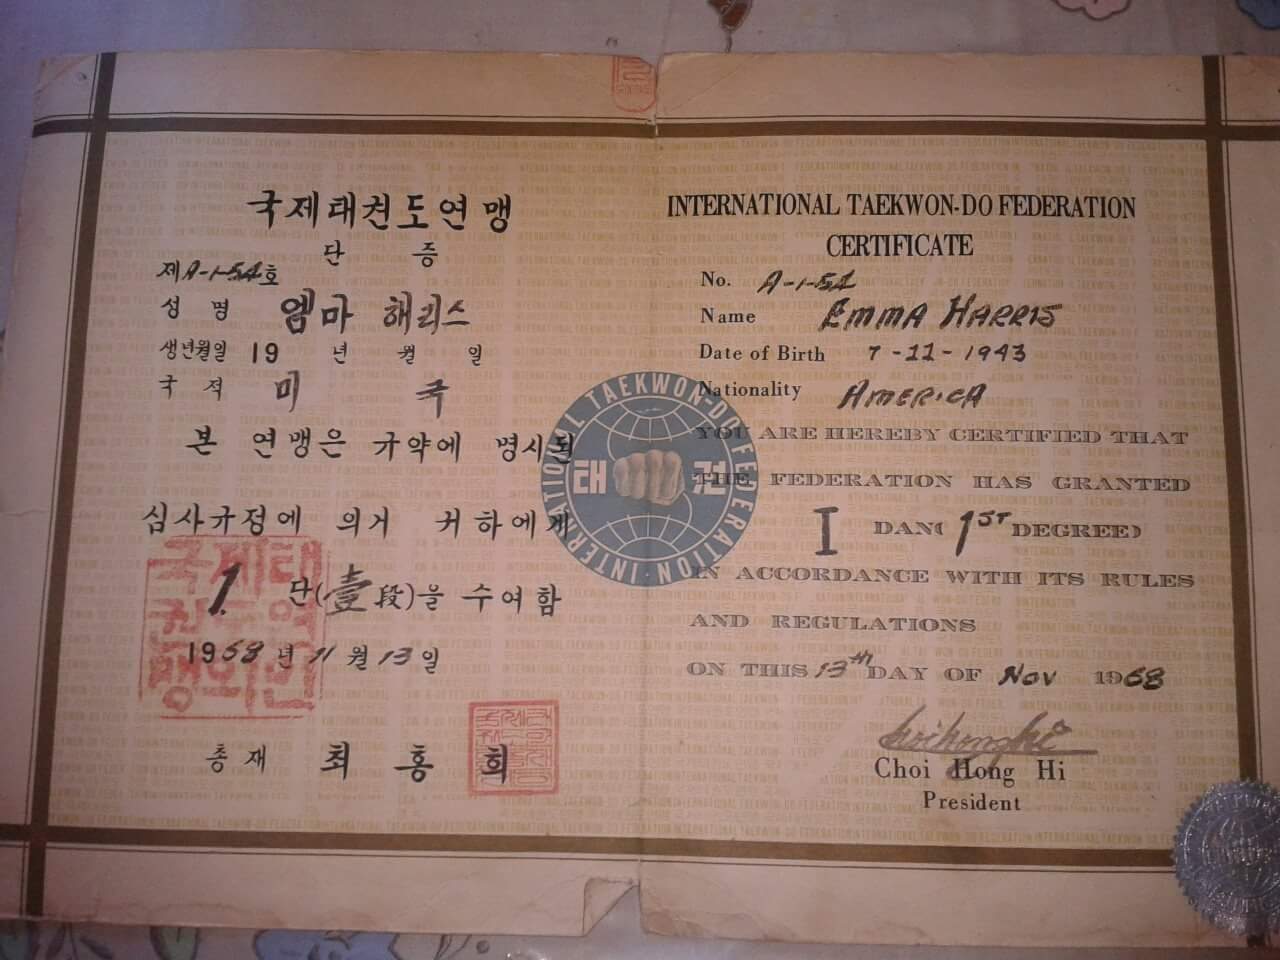 국제태권도연맹
단 증
제A-1-54호
성 명 엠마 해리스
생년월일 19 년 월 일
국 적 미 국
본 연맹은 규약에 명시된
심사규정에 의거 귀하에게
1. 단(壹段)을 수여함
1968년 11월 13일
총 재 최 홍 희
국제태
권도연
맹의인
INTERNATIONAL TAEKWON-DO FEDERATION
CERTIFICATE
No. A-1-54
Name EMMA HARRIS
Date of Birth 7-11-1943
Nationality AMERICA
YOU ARE HEREBY CERTIFIED THAT
THE FEDERATION HAS GRANTED
I DAN( 1ST DEGREE)
IN ACCORDANCE WITH ITS RULES
AND REGULATIONS
ON THIS 13th DAY OF Nov 1968
Choi Hong Hi
Choi Hong Hi
President
INTERNATIONAL TAEKWON-DO FEDERATION
태 권